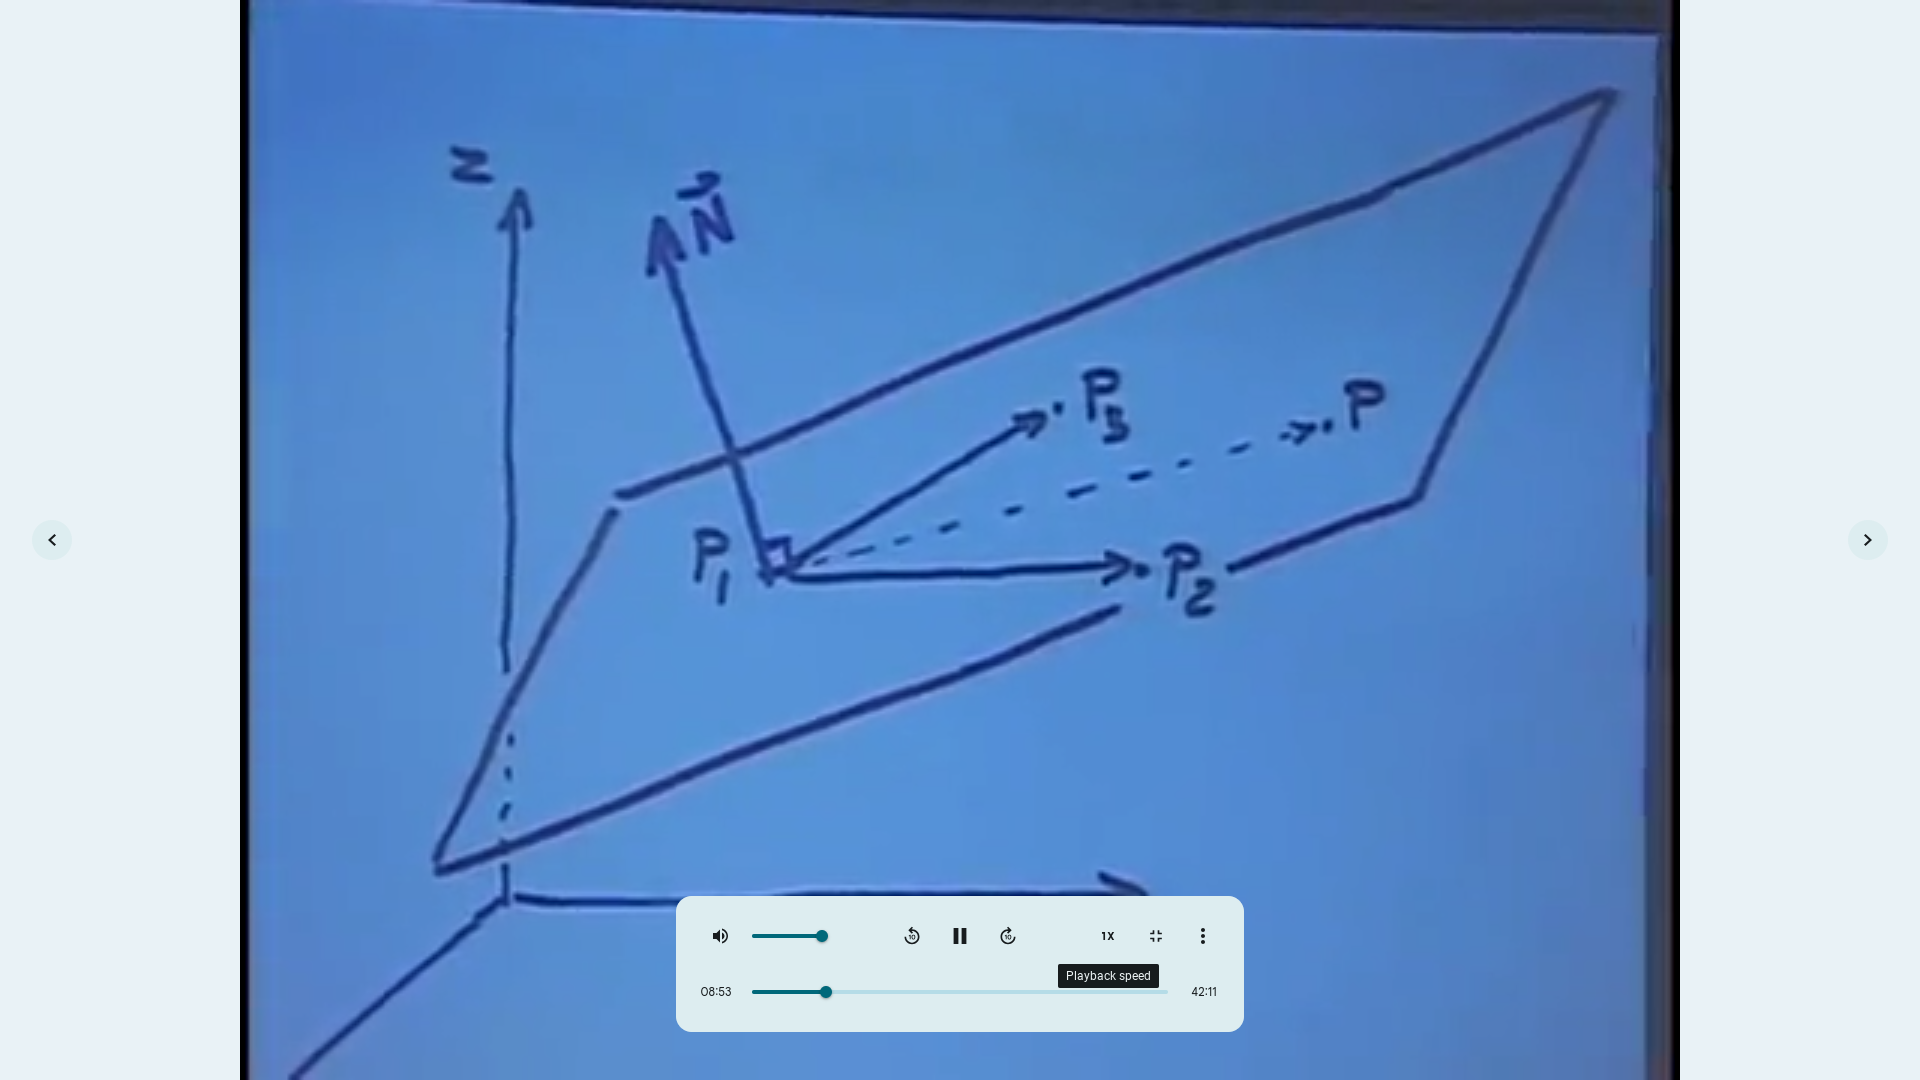 z
N
P3
P
P1
P2
1X
Playback speed
08:53
42:11